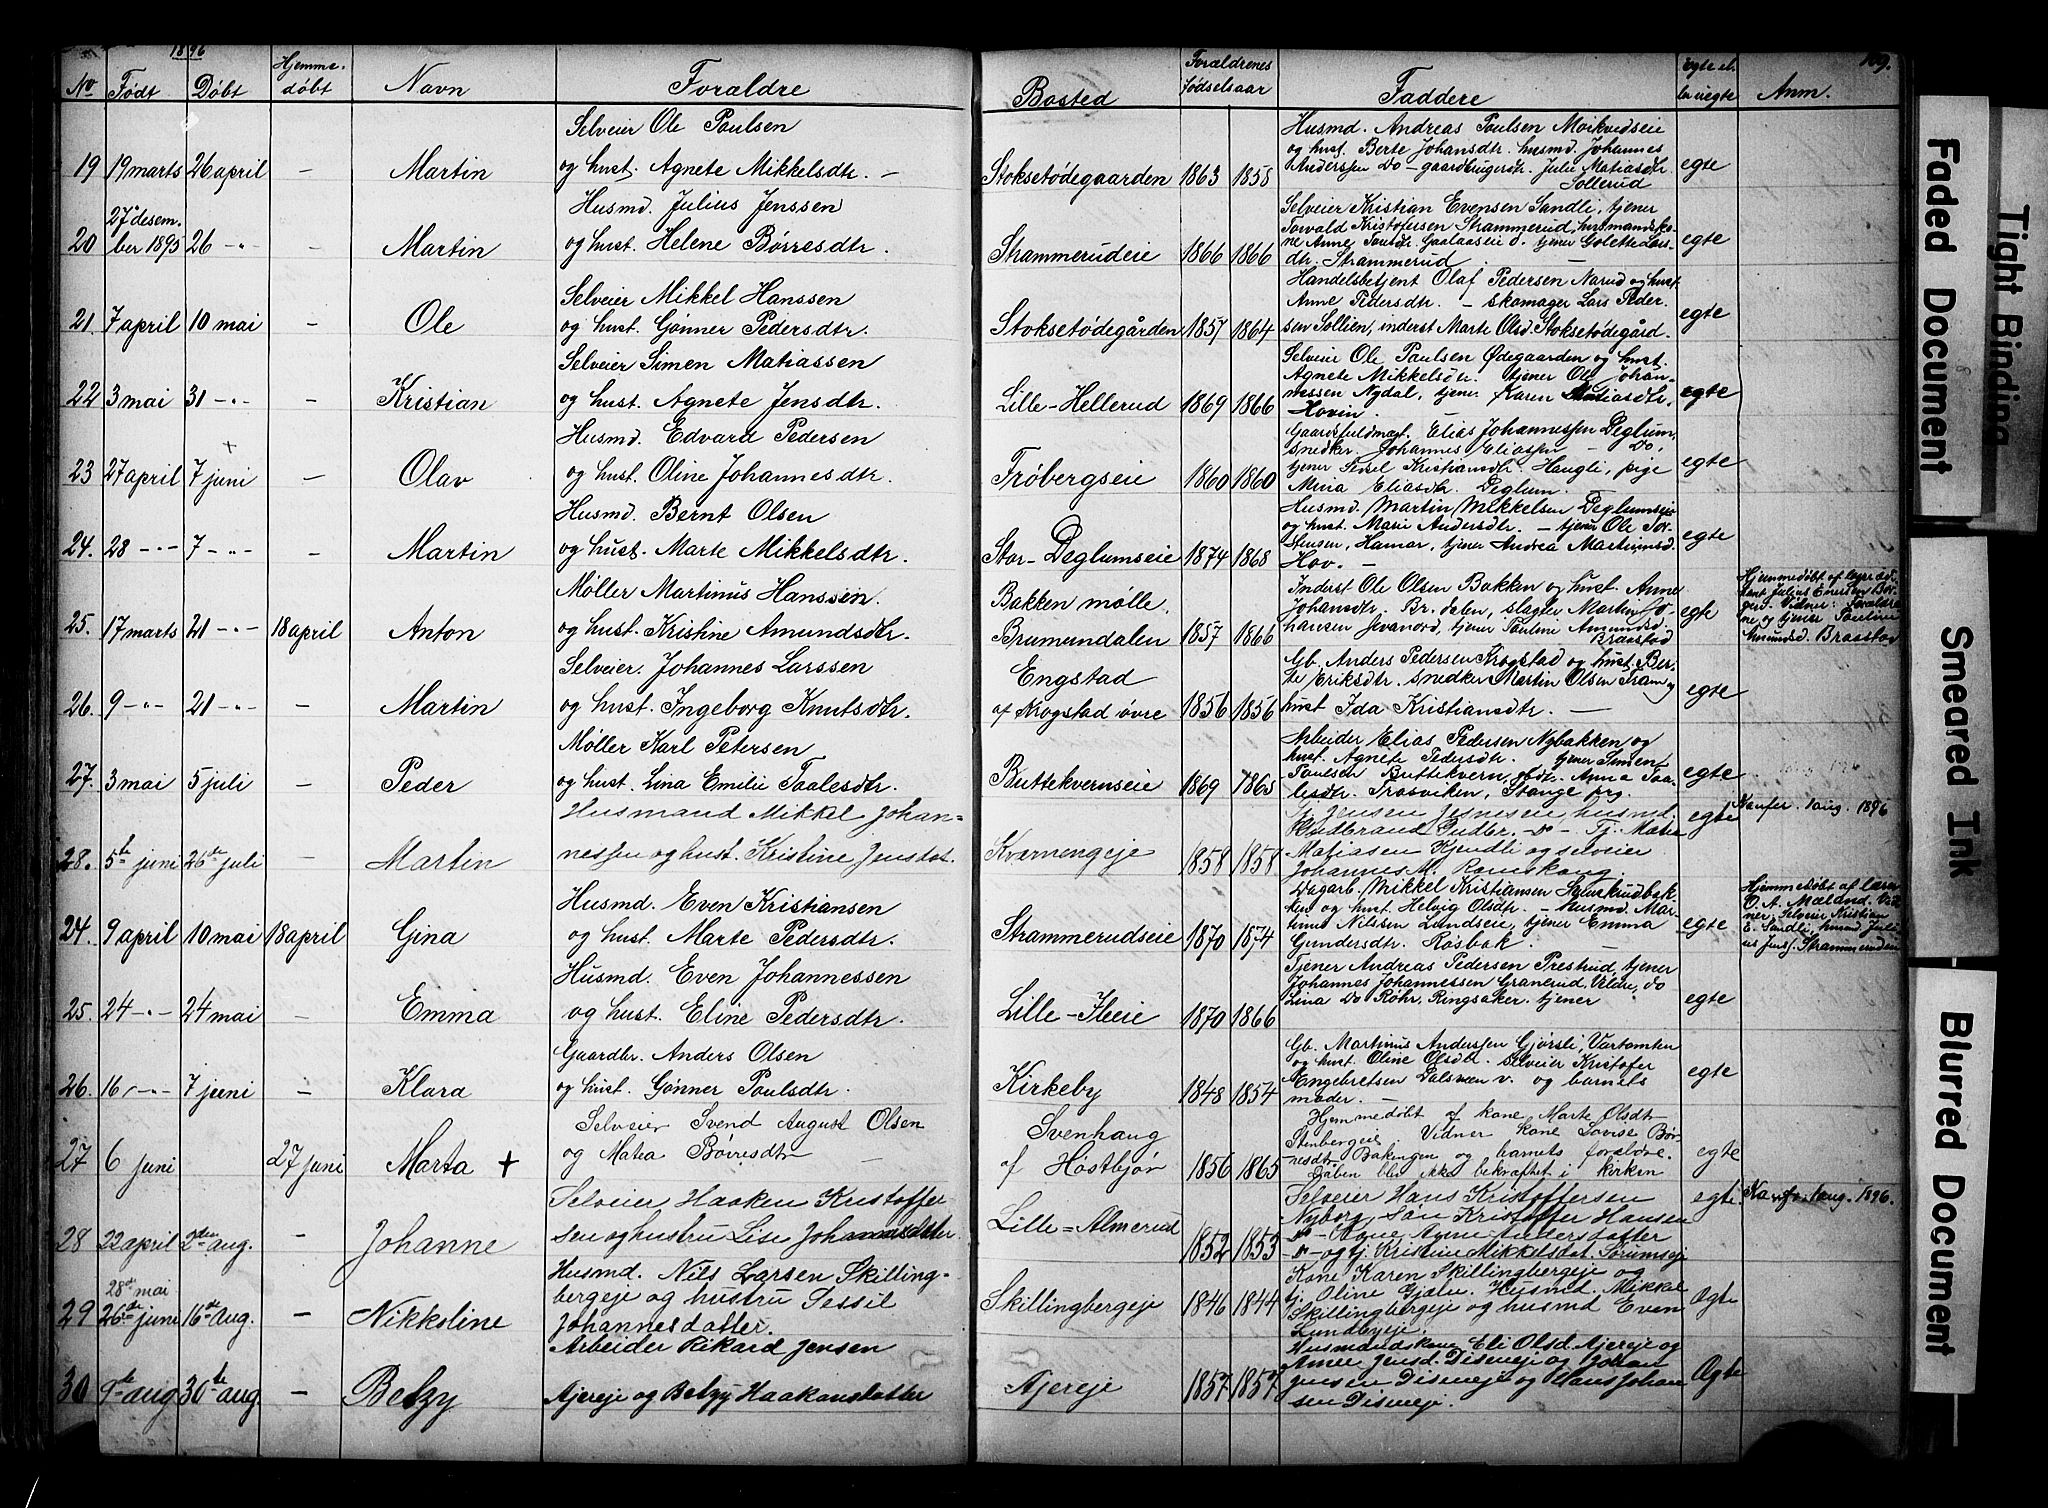 1896
109.
No Født Døbt Hjemme-døbt Navn Forældre Bosted Forældrenes fødselsaar Faddere ægte el. uægte Anm.
Selveier Ole Paulsen
19 19 marts 26 april – Martin og hust. Agnete Mikkelsdtr. – Stoksetødegaarden 1863 1858 egte
Husmd. Andreas Paulsen Mørkvedseie
og hust. Berte Johansdtr. husmd. Johannes
Anderssen Do – gaardbrugerdtr. Julie Matiasdtr.
Sollerud
Husmd. Julius Jenssen
27 desem-
20 ber 1895 26 -"- – Martin og hust. Helene Børresdtr Strammerudeie 1866 1866 egte
Selveier Kristian Evensen Sandli, tjener
Torvald Kristofersen Strammerud, husmandsko-
ne Anne Gaalaaseie tjener Golette Lars-
dtr. Strammerud.
Selveier Mikkel Hanssen
21 7 april 10 mai – Ole og hust. Gønner Pedersdtr. Stoksetødegården 1857 1864 egte
Handelsbetjent Olaf Pedersen Narud og hust.
Anne Pedersdtr. – skomager Lars Peder-
sen Sollien, inderst Marte Olsd. Stoksetødegård.
Selveier Simen Matiassen
22 3 mai 31 -"- – Kristian og hust. Agnete Jensdtr. Lille-Hellerud 1869 1866 egte
Selveier Ole Paulsen Ødegaarden og hust.
Agnete Mikkelsdtr. tjener Ole Johan-
nessen Nydal, tjener Karen Matiasdtr.
Hovin.
Husmd. Edvard Pedersen
23 27 april 7 juni – Olav og hust. Oline Johannesdtr. Frøbergseie 1860 1860 egte
Gaardsfuldmægt. Elias Johannessen Deglum,
snedker Johannes Eliassen – Do,
tjener Sissel Kristiansdtr. Haugli, pige
Mina Eliasdtr. Deglum.
Husmd. Bernt Olsen
24. 28 -"- 7 -"- – Martin og hust. Marte Mikkelsdtr. Stor-Deglumseie 1874 1868 egte
Husmd. Martin Mikkelsen Deglumseie
og hust. Marie Andersdtr. – tjener Ole Tor-
stensen, Hamar, tjener Andrea Martinusd.
Hov. –
Møller Martinus Hanssen. Bakken mølle,
25. 17 marts 21 -"- 18 april Anton og hust. Kristine Amundsdtr. Brumundalen 1857 1866 egte
Inderst Ole Olsen Bakken og hust. Anne
Johansdtr. Br.dalen, slagter Martin Jo-
hansen tjener Pauline Amundsd.
Braastad
Hjemmedøbt af
Julius
Vidner: Forældre
ne og tjener Pauline
Amundsd. Braastad
Selveier. Johannes Larssen Engstad
26. 9 -"- 21 -"- – Martin og hust. Ingeborg Knutsdtr. af Krogstad øvre 1856 1856 egte
Gb. Anders Pedersen Krogstad og hust. Ber-
te Eriksdtr. snedker Martin Olsen Fram og
hust Ida Kristiansdtr. –
Møller Karl Petersen
27. 3 mai 5 juli – Peder og hust. Lina Emilie Taalesdtr. Buttekvernseie 1869 1865 egte
Arbeider Elias Pedersen Nybakken og
hust. Agnete Pedersdtr. tjener Simen
Paulsen Buttekvern, Anna Taa-
lesdtr. Frasviken, Stange prg.
Husmand Mikkel Johan-
28. 5te juni 26de juli – Martin nessen og hust. Kristine Jensdat. Kvarnengeje 1858 1858 egte
Tj. Jensen Jesneseie, husmd.
Gudbrand Gudbr. -"- Tj. Mate
Matiasen Kjendli og selveier
Johannes M. Romskaug.
Konfer. 1 aug. 1896
Husmd. Even Kristiansen
24. 9 april 10 mai 18 april Gina og hust. Marte Pedersdtr. Strammerudseie 1870 1874 egte
Dagarb. Mikkel Kristiansen
ken og hust. Helvig Olsdtr. – husmd. Mar-
tinus Nilssen Lundseie, tjener Emma
Gundersdtr. Rosbak.
Hjemmedøbt af lærer
O. A. Mælud. Vid-
ner: Selveier Kristian
E. Sandli, husmd. Juli-
us Jenss. Strammerudeie
Husmd. Even Johannessen
25. 24 -"- 24 mai – Emma og hust. Eline Pedersdtr. Lille-Ileeie 1870 1866 egte
Tjener Andreas Pedersen Prestrud, tjener
Johannes Johannessen Granerud, Veldre, do
Lina Do Røhr, Ringsaker. tjener
Gaardbr. Anders Olsen
26. 16 -"- 7 juni – Klara og hust. Gønner Paulsdtr. Kirkeby 1848 1854 egte
Gb. Martinus Anderssen Gjørsli, Vartomten
og hust. Oline Olsdtr. Selveier Kristofer
Engebretsen Dalsveen v. og barnets
moder. –
Selveier Svend August Olsen Svenhaug
27 6 juni 27 juni Marta + og Matea Børresdtr af Høstbjør 1856 1865 egte
Hjemmedøbt af kone Marte Olsdtr
Stenbergeie Vidner kone Lovise Bør-
resdtr Bakengen og barnets forældre.
Daaben blev ikke bekræftet i kirken
Selveier Haaken Kristoffer-
28 22 april 2den aug. Johanne sen og hustru Lise Johannesdatter Lille-Almerud 1852 1853 egte.
Selveier Hans Kristoffersen
Nyborg, Søn Kristoffer Hansen
-"- Pige Agne Andersdatter
-"- og tj. Kristine Mikkelsdat. Sørumseje
Konfer. 1 aug. 1896.
Husmd. Nils Larsen Skilling-
28de mai
29 26de juni 16de aug. – Nikkoline bergeje og hustru Sessil Johannesdatter. Skillingbergeje 1846 1844 Ægte
Kone Karen Skillingbergeje og
tj. Oline Gjælu. Husmd. Mikkel
Skillingbergeje og husmd Even
Lundbyeje.
Arbeider Rikard Jensen
30 9de aug 30te aug. – Betzy Ajereje og Betzy Haakonsdatter Ajereje 1857 1857 Ægte
Husmandskone Eli Olsd. Ajereje og
Anne Jensd. Diseneje og Johan
Jensen Diseneje og Hans Johan
sen Diseneje.
Faded Document
Tight Binding
Smeared Ink
Blurred Document